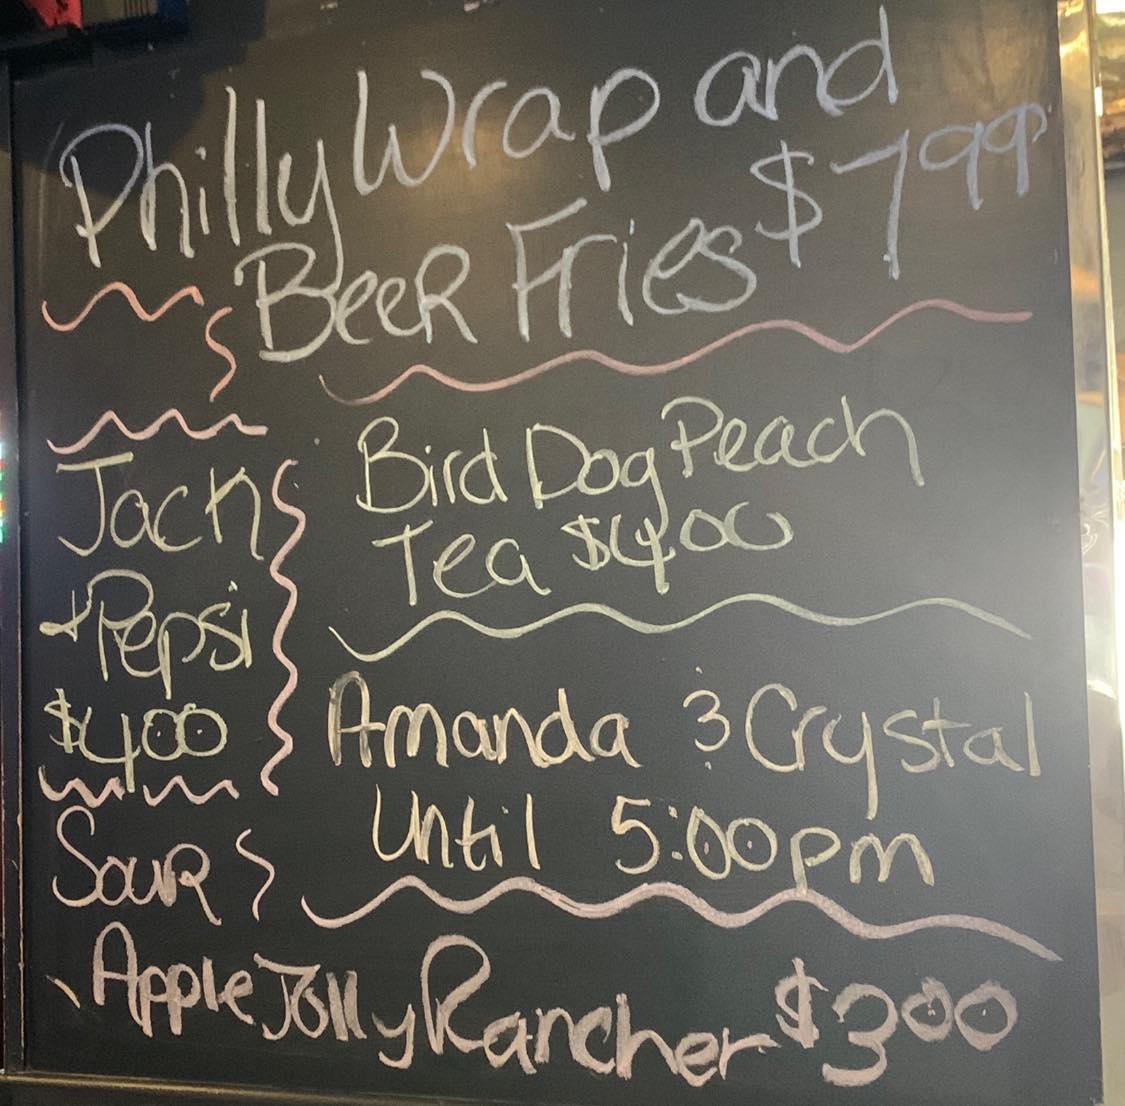 Philly Wrap and
Beer Fries $799
Jack
+ Pepsi
$400
Bird Dog Peach
Tea $400
Amanda & Crystal
Until 5:00pm
Sour
Apple Jolly Rancher $300